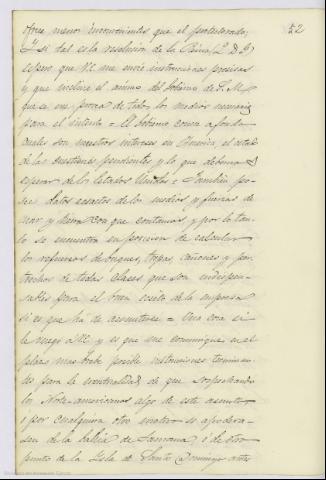 52
ofrece menos inconvenientes que el protectorado;
y si tal es la resolucion de la Reina (q. D. g.)
espero que V.E. me envie instrucciones precisas
y que incline el animo del Gobierno de S. M.
que se me provea de todos los medios necesarios
para el intento = El Gobierno conoce a fondo
cuales son nuestros intereses en America, el estado
de las cuestiones pendientes y lo que debemos
esperar de los Estados Unidos = Tambien po-
see datos exactos de los medios y fuerzas de
mar y tierra con que contamos, y por lo tan-
to se encuentra en posicion de calcular
los refuerzos de buques, tropas, cañones y per-
trechos de todas clases, que son indispen-
sables para el buen exito de la empresa
si es que ha de acometerse = Una cosa si
le ruego a V.E. y es que me comunique en el
plazo mas breve posible instrucciones terminan-
tes para la eventualidad de que sospechando
los Norte-americanos algo de este asunto
ó por cualquiera otro motivo se apodera-
sen de la bahia de Samana, ó de otro
punto de la Isla de Santo Domingo antes